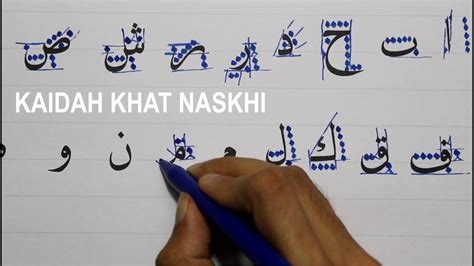 ا ت خ د ر ر ض
KAIDAH KHAT NASKHI
ف ق ك ل م م ن و